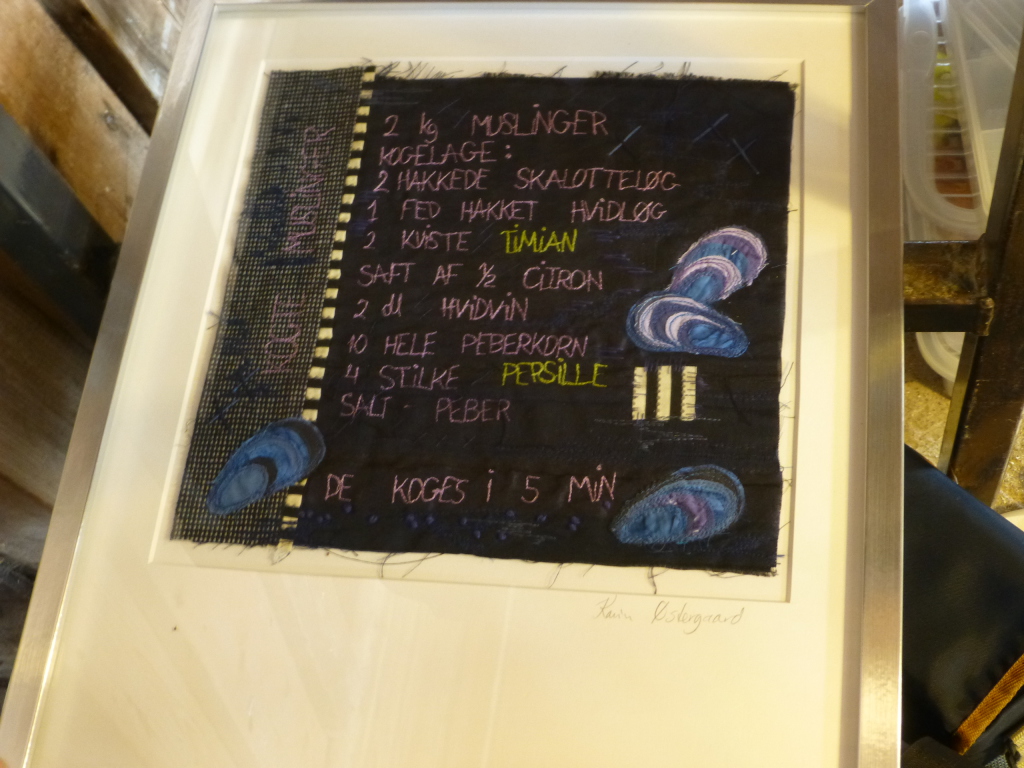 KOGTE MUSLINGER
2 kg MUSLINGER
KOGELAGE:
2 HAKKEDE SKALOTTELØG
1 FED HAKKET HVIDLØG
2 KVISTE TIMIAN
SAFT AF ½ CITRON
2 dl HVIDVIN
10 HELE PEBERKORN
4 STILKE PERSILLE
SALT - PEBER
DE KOGES I 5 MIN
Karin Østergaard